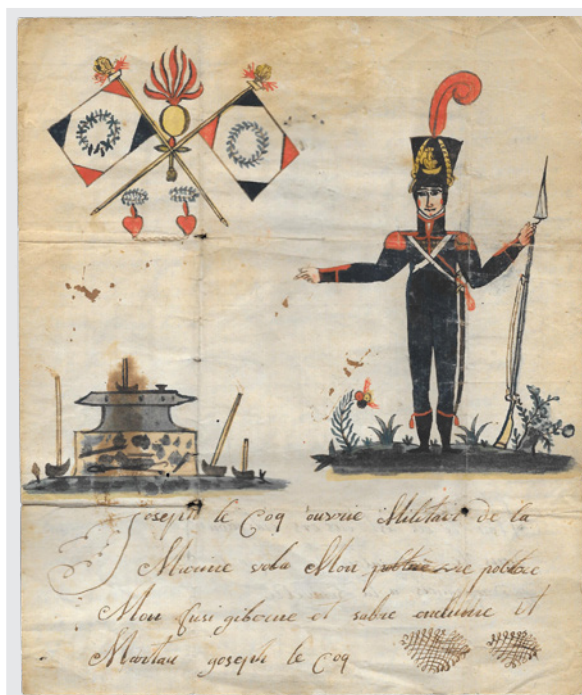 Joseph le Coq ouvrie Militair de la
Mirine vola Mon poltrai vre poltrre
Mon fusi giberne et sabre enclume et
Martau goseph le Coq